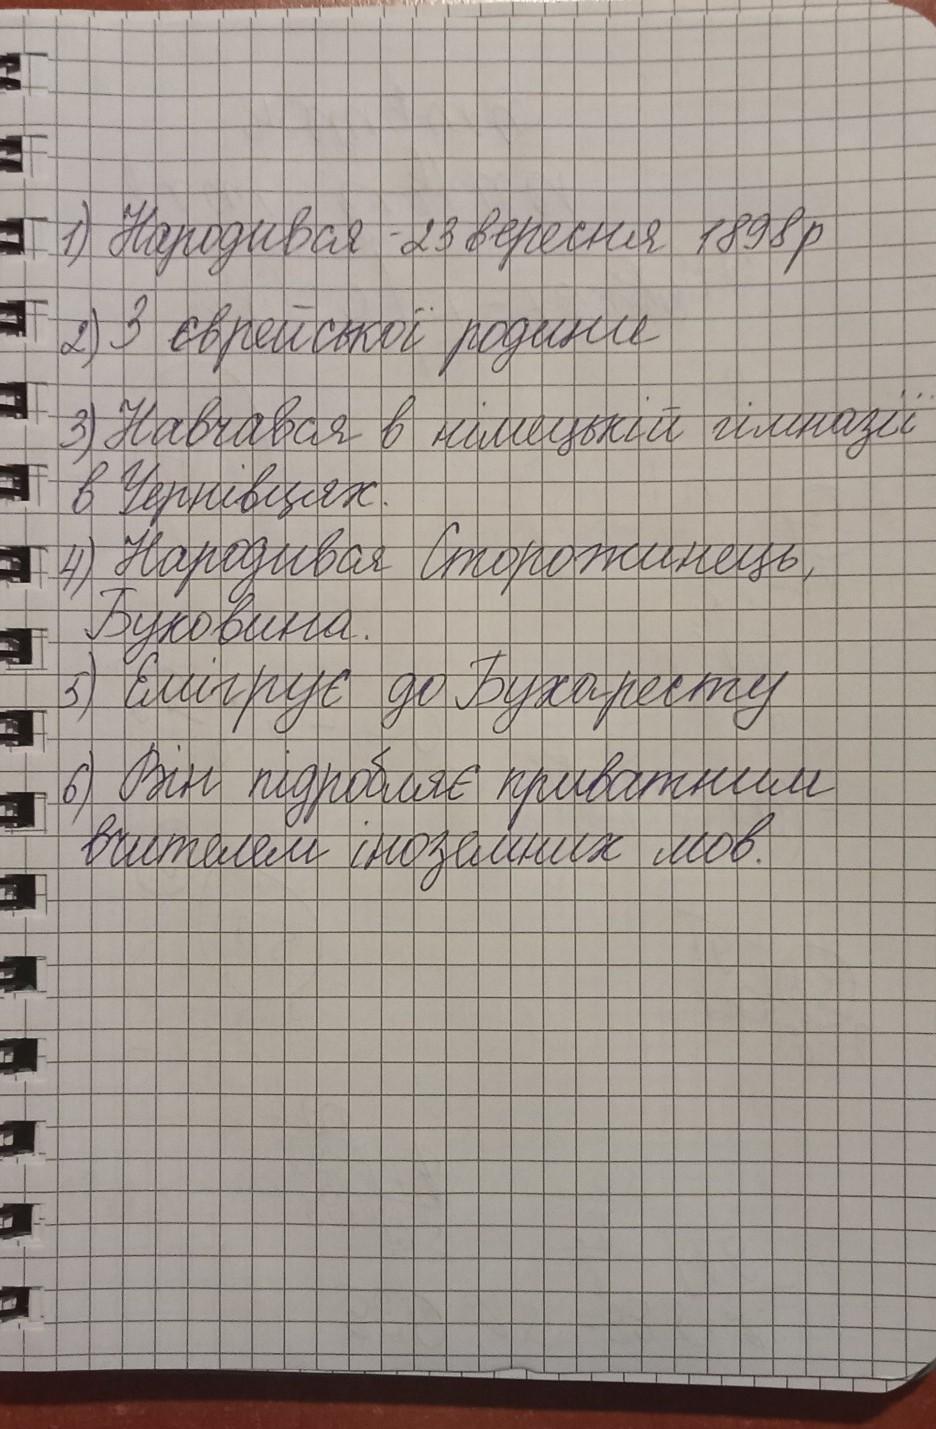 1) Народився - 23 вересня 1898р
2) З єврейської родини
3) Навчався в німецькій гімназії
в Чернівцях.
4) Народився Сторожинець,
Буковина.
5) Емігрує до Бухаресту
6) Він підробляє приватним
вчителем іноземних мов.